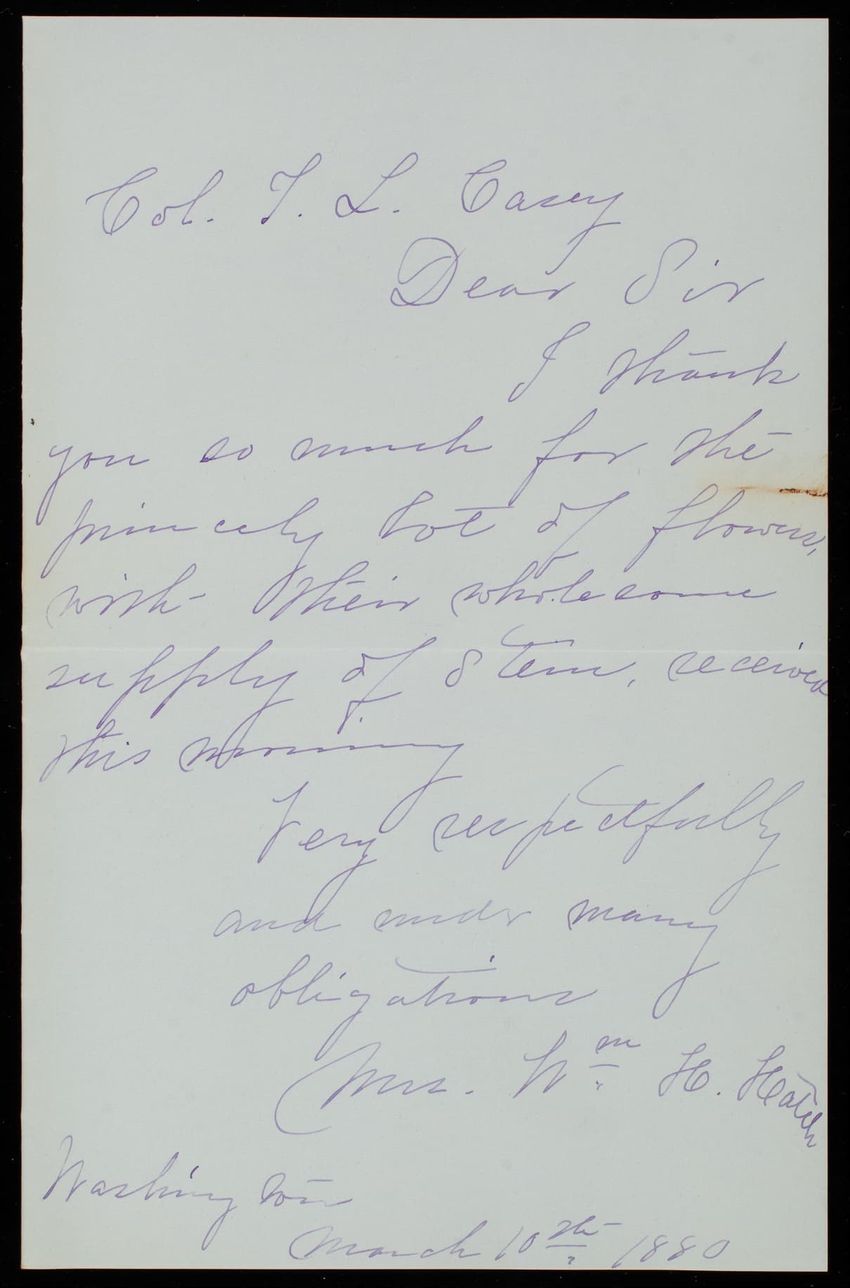 Col. T. L. Casey
Dear Sir
I thank
you so much for the
princely lot of flowers,
with their wholesome
supply of stem, received
this morning
Very respectfully
and under many
obligations
Mrs. Wm. H. Hatch
Washington
March 10th 1880